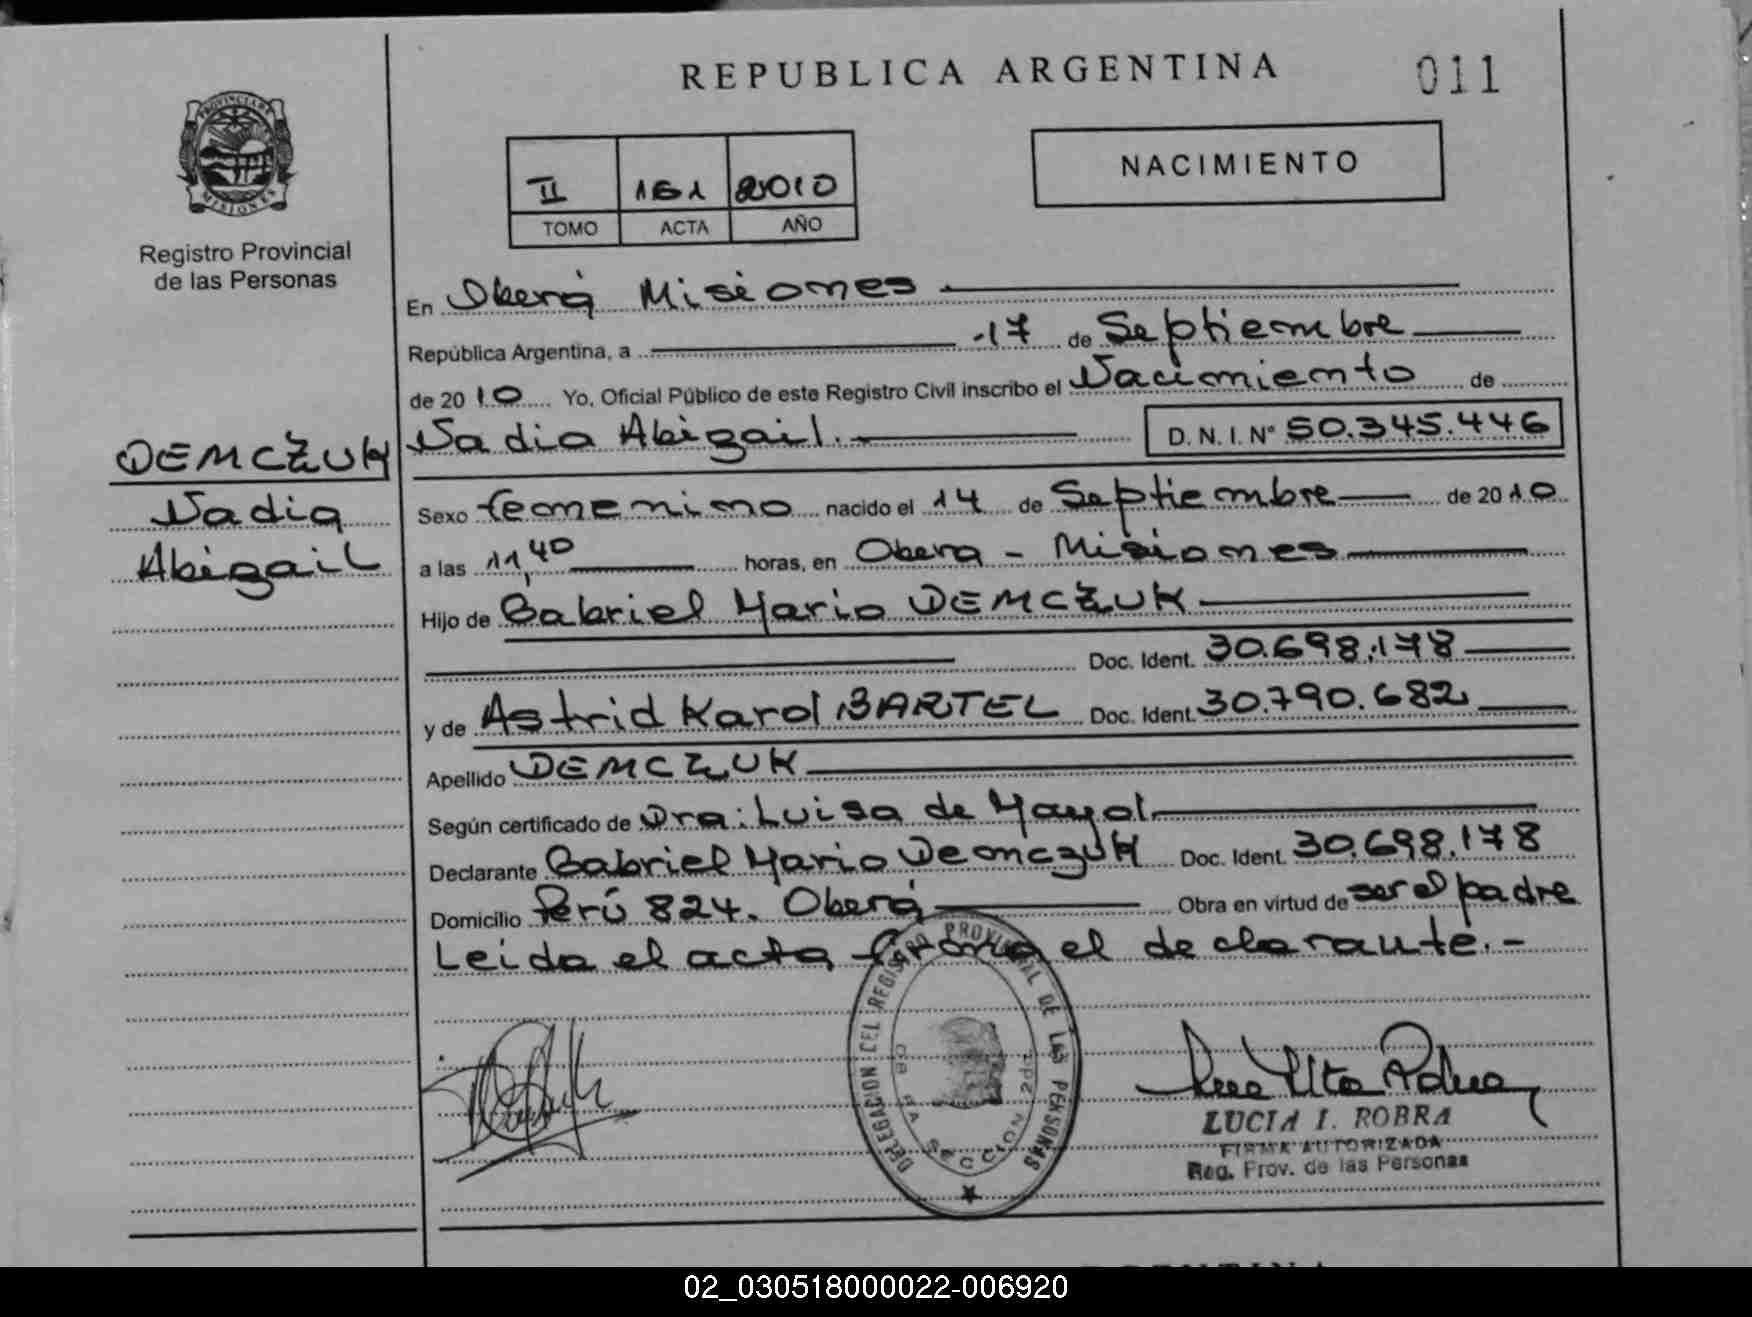 REPUBLICA ARGENTINA
011
NACIMIENTO
II 161 2010
TOMO ACTA AÑO
PROVINCIA DE
MISIONES
Registro Provincial
de las Personas
DEMCZUK
Nadia
Abigail
En Oberá Misiones
República Argentina, a 17 de Septiembre
de 2010 Yo, Oficial Público de este Registro Civil inscribo el Nacimiento de
Nadia Abigail.- D. N. I. Nº 50.345.446
Sexo femenino nacido el 14 de Septiembre de 2010
a las 11,40 horas, en Obera - Misiones
Hijo de Gabriel Mario DEMCZUK
Doc. Ident. 30.698.178
y de Astrid Karol BARTEL Doc. Ident. 30.790.682
Apellido DEMCZUK
Según certificado de Dra: Luisa de Mayol
Declarante Gabriel Mario Demczuk Doc. Ident. 30.698.178
Domicilio Perú 824. Oberá Obra en virtud de ser el padre
Leida el acta firma el declarante.-
DELEGACION DEL REGISTRO PROVINCIAL DE LAS PERSONAS
SECCION 2da
LUCIA I. ROBRA
FIRMA AUTORIZADA
Reg. Prov. de las Personas
02_030518000022-006920